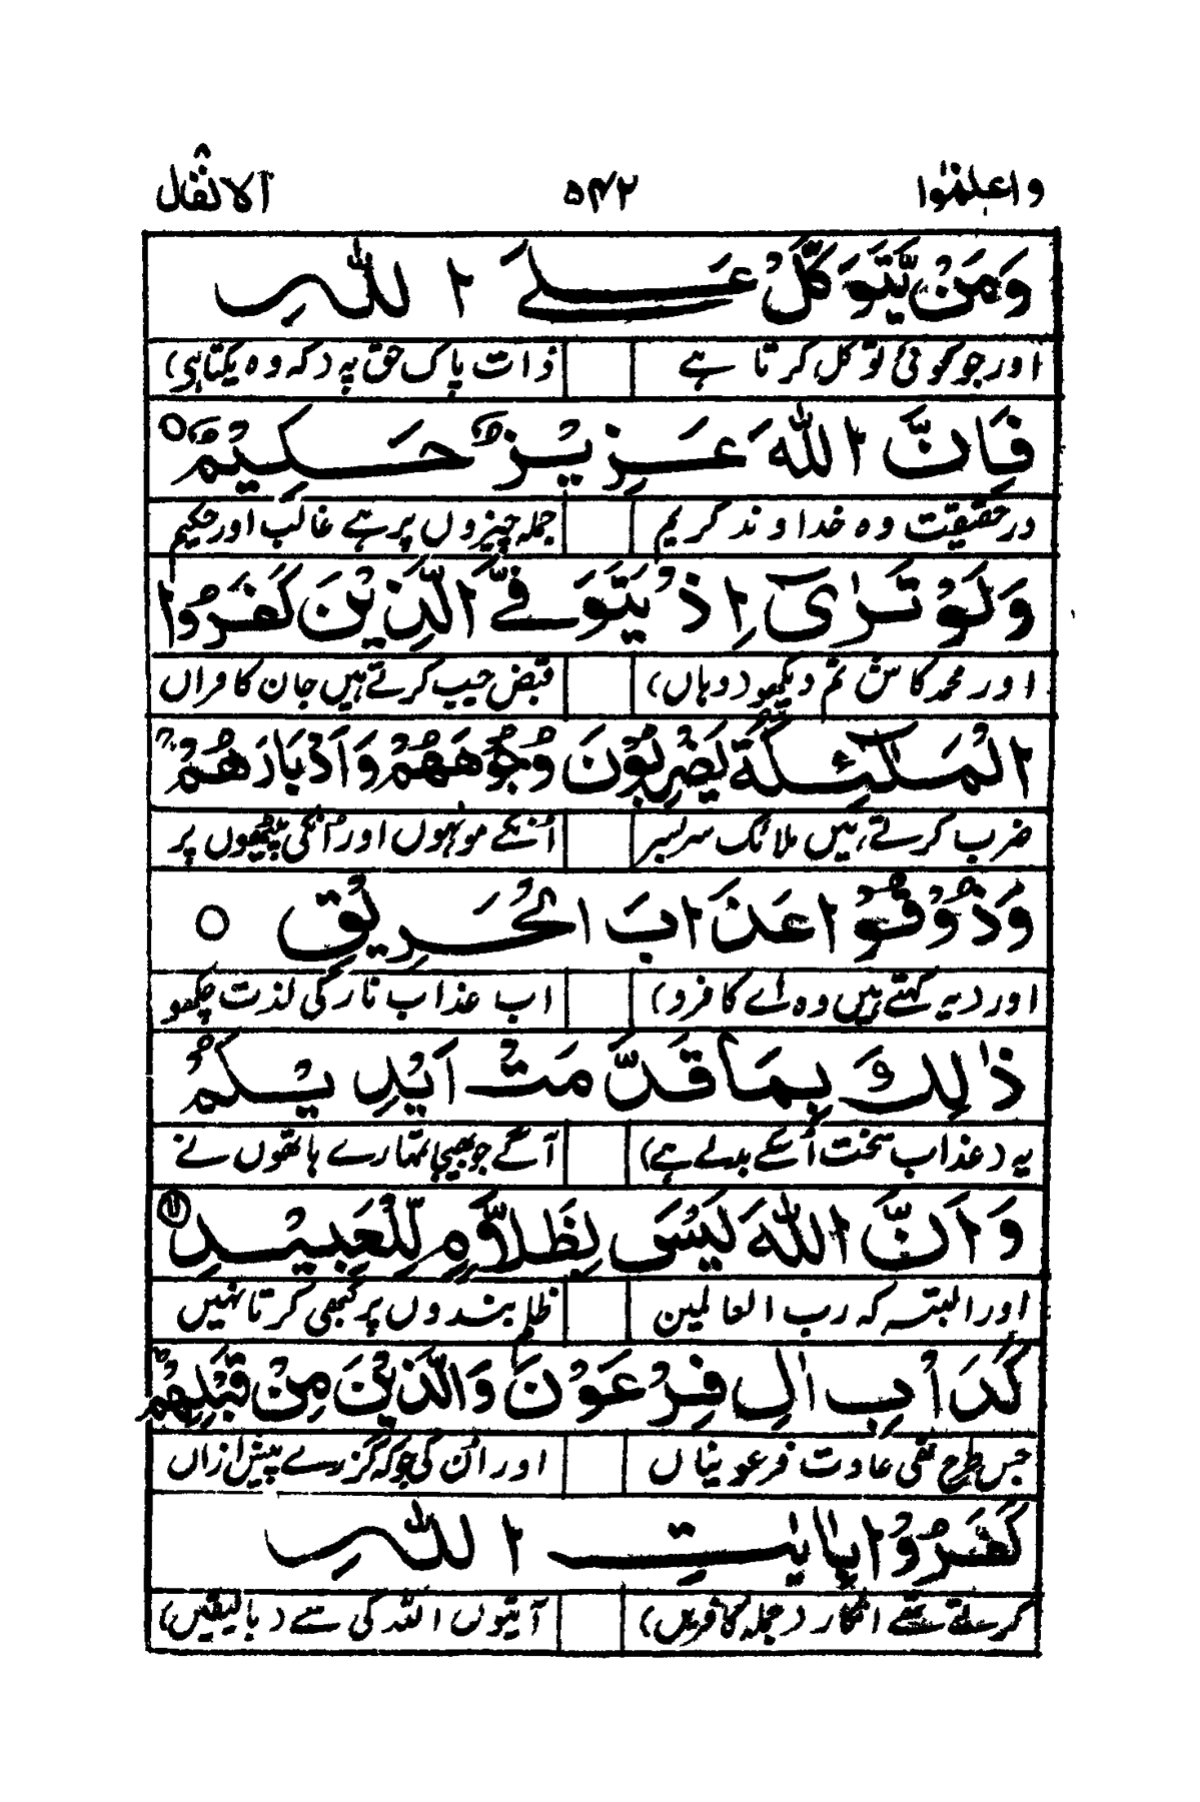 واعلموا ۵۴۲ الانفال ۸
وَمَنْ يَّتَوَكَّلْ عَلَى اللّٰهِ
اور جو کوئی توکل کرتا ہے ذات پاک حق پہ (کہ وہ یکتا ہی)
فَاِنَّ اللّٰهَ عَزِيْزٌ حَكِيْمٌ ○
درحقیقت وہ خداوند کریم جملہ چیزوں پر ہے غالب اور حکیم
وَلَوْ تَرٰٓى اِذْ يَتَوَفَّى الَّذِيْنَ كَفَرُوا
اور محمد کاش تم دیکھو (وہاں) قبض جب کرتے ہیں جان کافراں
الْمَلٰٓئِكَةُ يَضْرِبُوْنَ وُجُوْهَهُمْ وَاَدْبَارَهُمْ ۚ
ضرب کرتے ہیں ملائک سربسر اُنکے مونہوں اور اُنکی پیٹھوں پر
وَذُوْقُوْا عَذَابَ الْحَرِيْقِ ○
اور (یہ کہتے ہیں وہ اے کافرو) اب عذاب نار کی لذت چکھو
ذٰلِكَ بِمَا قَدَّمَتْ اَيْدِيْكُمْ
یہ (عذاب سخت اُسکے بدلے ہے) آگے جو بھیجا تمہارے ہاتھوں نے
وَاَنَّ اللّٰهَ لَيْسَ بِظَلَّامٍ لِّلْعَبِيْدِ ۙ
اور البتہ کہ رب العالمین ظلم بندوں پر کبھی کرتا نہیں
كَدَاْبِ اٰلِ فِرْعَوْنَ وَالَّذِيْنَ مِنْ قَبْلِهِمْ ۚ
جس طرح تھی عادت فرعونیاں اور اُن کی جو کہ گزرے پیش ازاں
كَفَرُوْا بِاٰيٰتِ اللّٰهِ
کرتے تھے انکار (جملہ کافریں) آیتوں اللہ کی سے (بالیقیں)